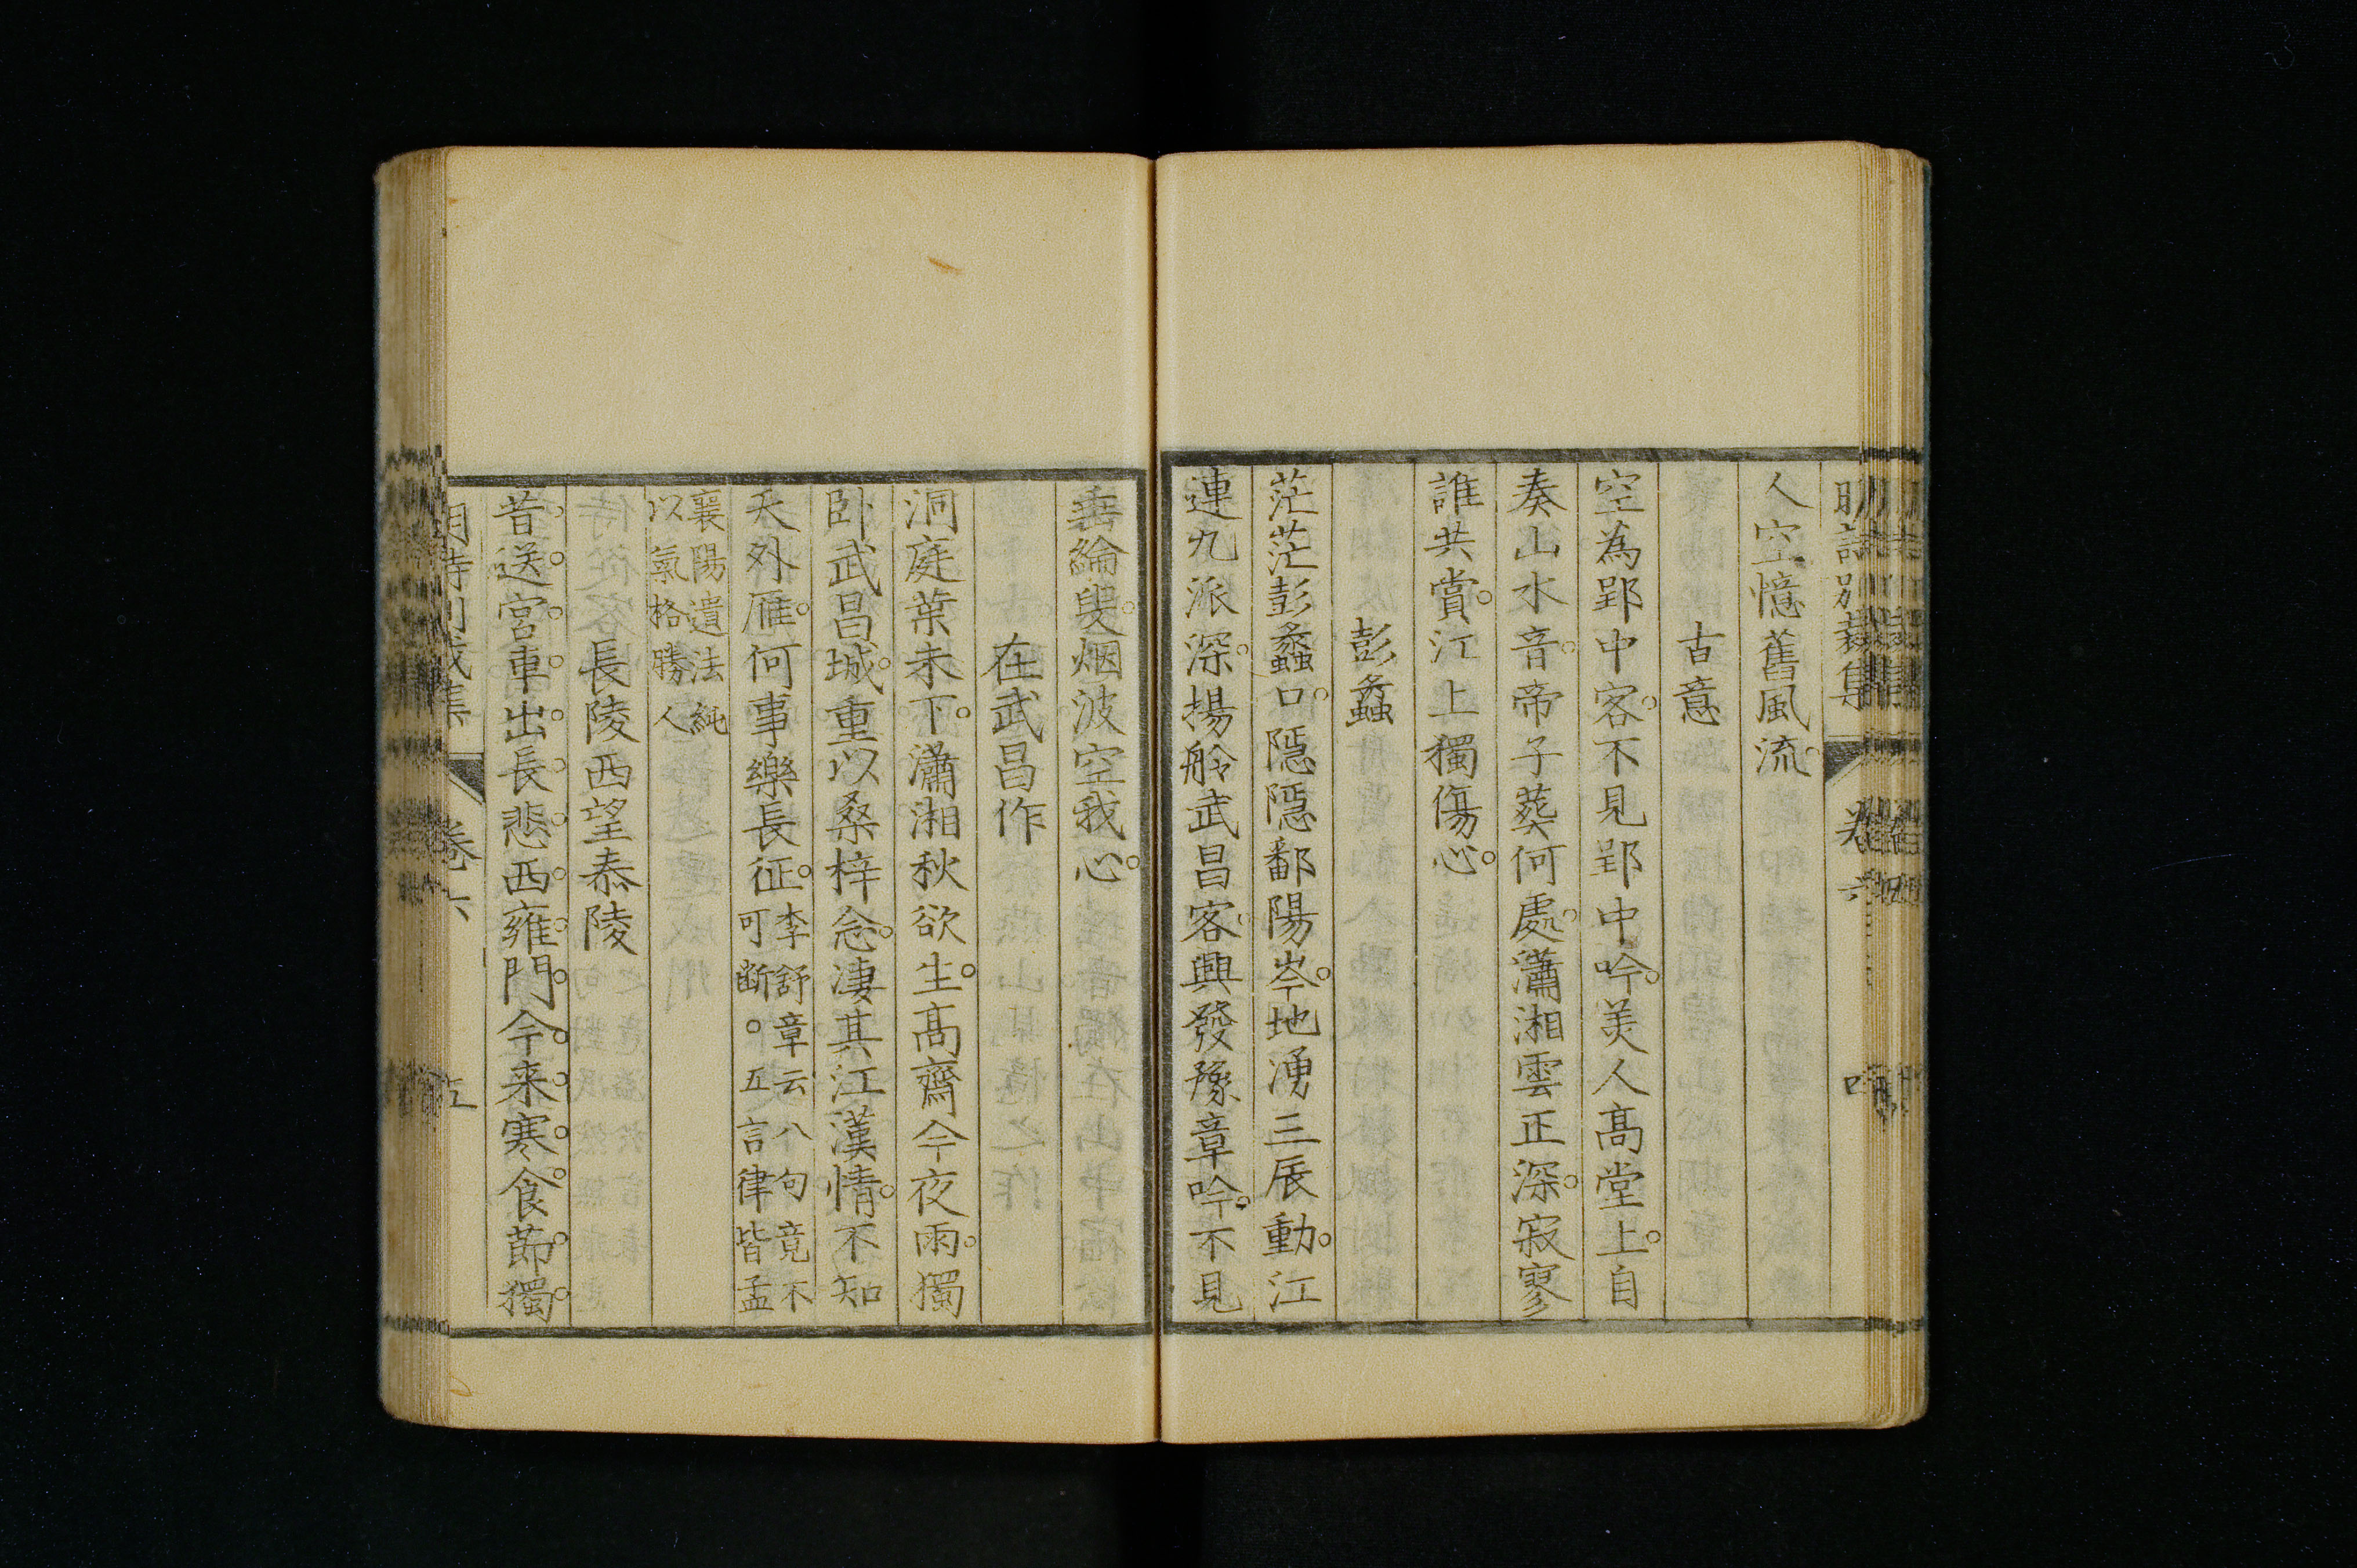 明詩別裁集 卷六
人空憶舊風流
古意
空為郢中客不見郢中吟美人高堂上自
奏山水音帝子葬何處瀟湘雲正深寂寥
誰共賞江上獨傷心
彭蠡
茫茫彭蠡口隱隱鄱陽岑地湧三辰動江
連九派深揚舲武昌客興發豫章吟不見
垂綸叟烟波空我心
在武昌作
洞庭葉未下瀟湘秋欲生高齋今夜雨獨
卧武昌城重以桑梓念凄其江漢情不知
天外雁何事樂長征李舒章云八句竟不
可斷。五言律皆孟
襄陽遺法純
以氣格勝人
長陵西望泰陵
昔送宮車出長悲西雍門今来寒食節獨
卷六
五